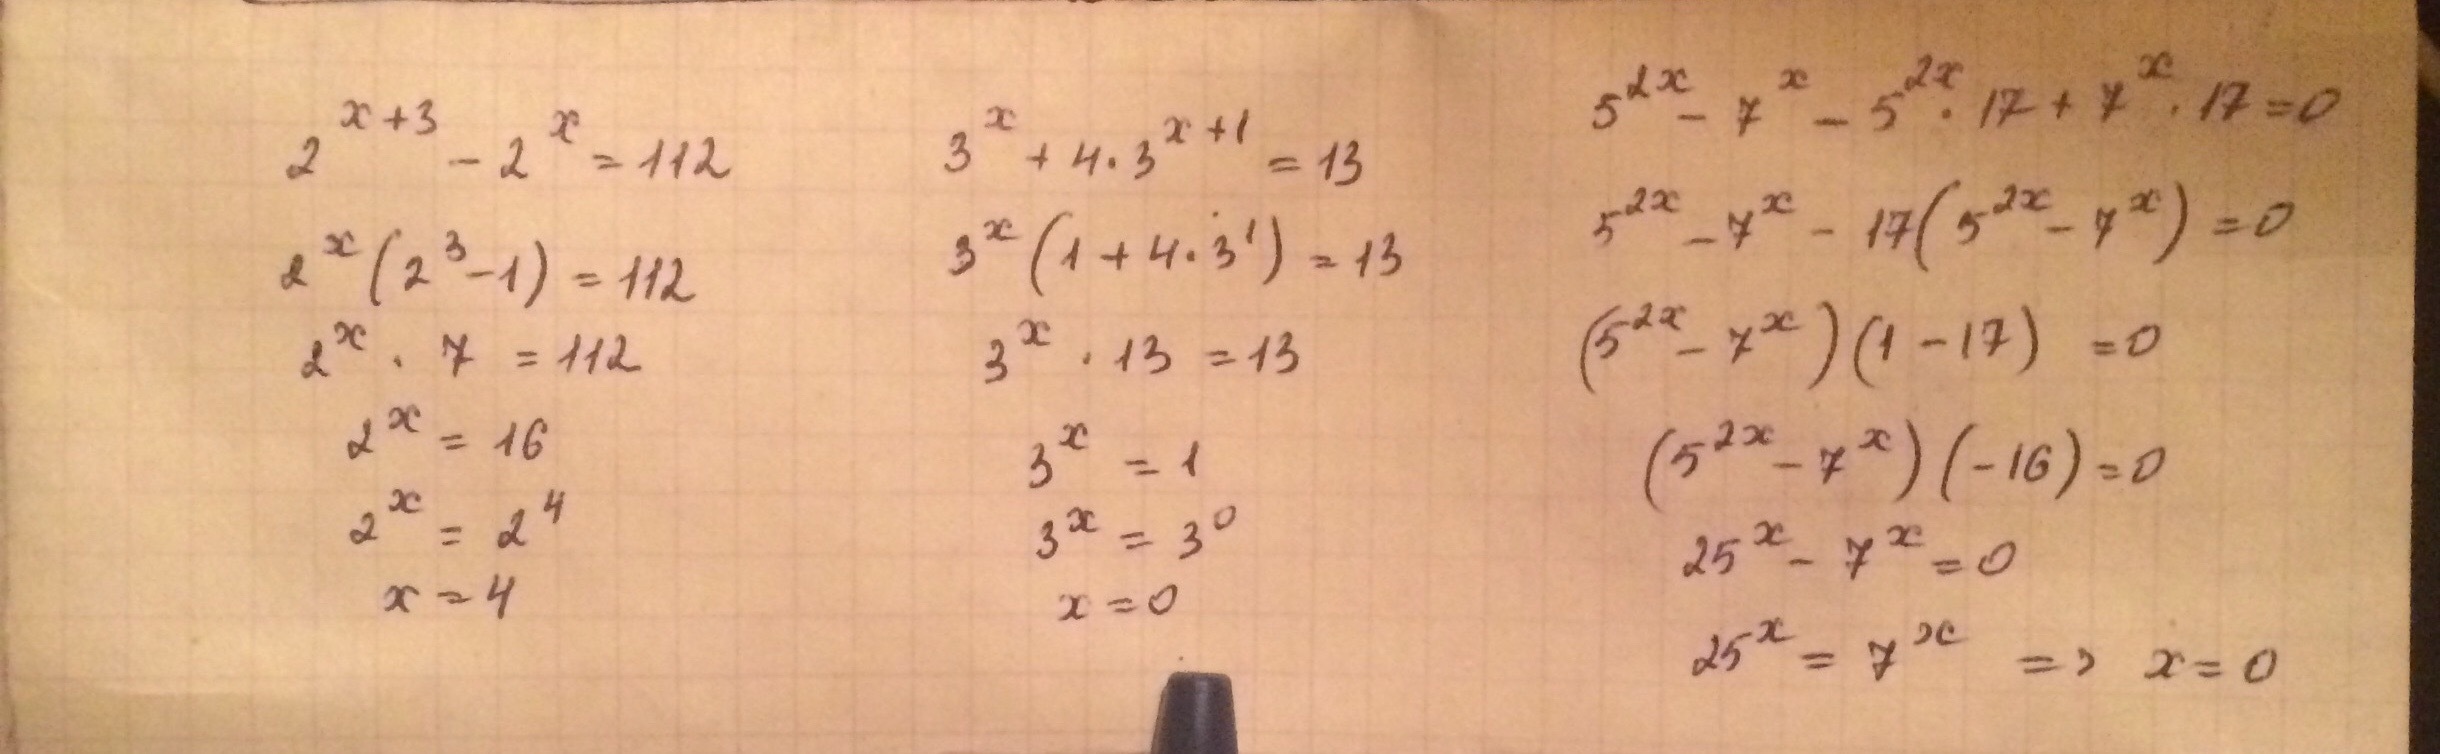 2^{x+3} - 2^x = 112
2^x (2^3 - 1) = 112
2^x · 7 = 112
2^x = 16
2^x = 2^4
x = 4
3^x + 4 · 3^{x+1} = 13
3^x (1 + 4 · 3^1) = 13
3^x · 13 = 13
3^x = 1
3^x = 3^0
x = 0
5^{2x} - 7^x - 5^{2x} · 17 + 7^x · 17 = 0
5^{2x} - 7^x - 17(5^{2x} - 7^x) = 0
(5^{2x} - 7^x)(1 - 17) = 0
(5^{2x} - 7^x)(-16) = 0
25^x - 7^x = 0
25^x = 7^x => x = 0